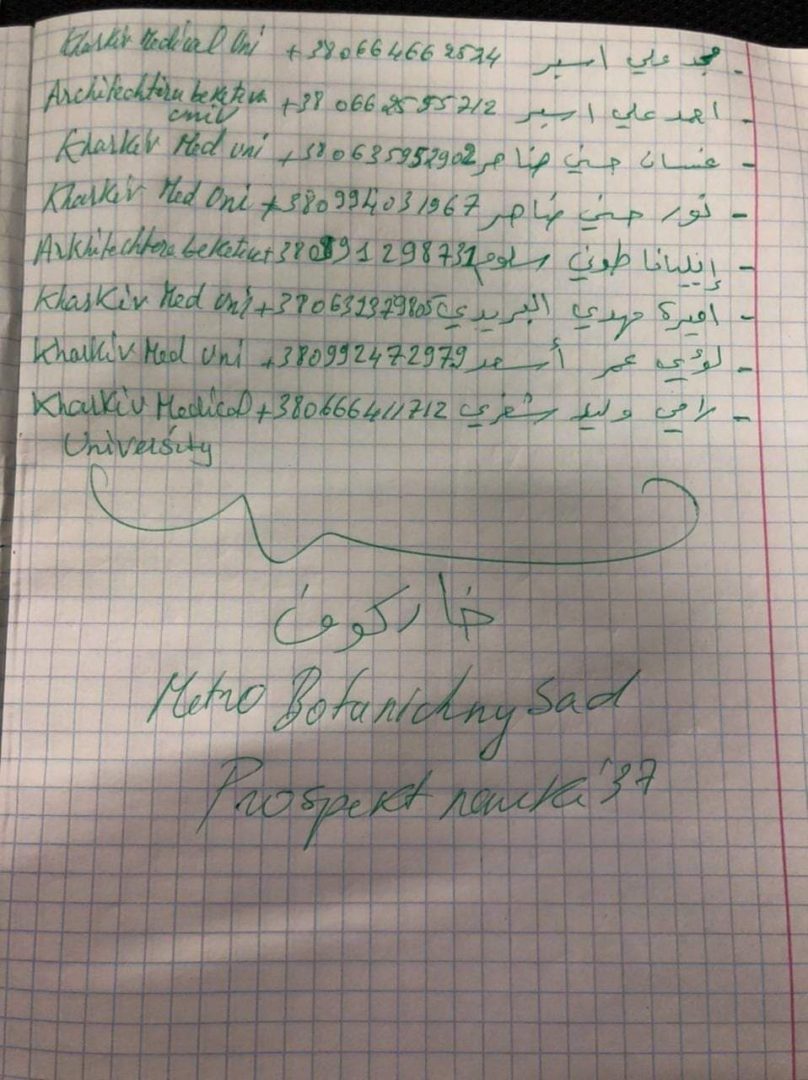 - مجد علي اسبر +380664662574 Kharkiv Medical Uni
- احمد علي اسبر +380662555712 Architechtura beketova univ
- غسان حسني ضاهر +380635952902 Kharkiv Med uni
- نور حسني ضاهر +380994031967 Kharkiv Med Uni
- إيليانا طوني سلوم Arkhitechtora beketiv
- اميرة مهدي البريدي +380631379805 Kharkiv Med Uni
- لؤي عمر أسعد +380992472979 Kharkiv Med Uni
- رامي وليد شغري +380666411712 Kharkiv Medical
University
خاركوف
Metro Botanichny Sad
Prospekt nauki 37